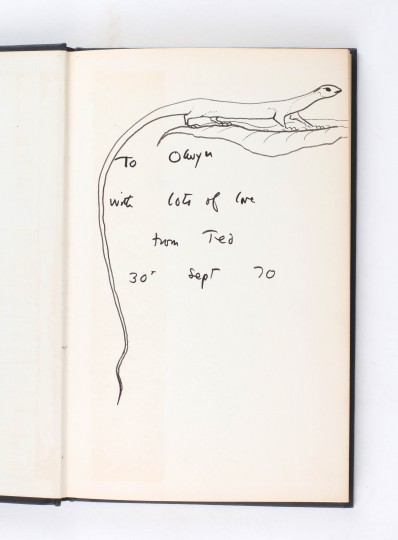 To Olwyn
with lots of love
from Ted
30th Sept 70